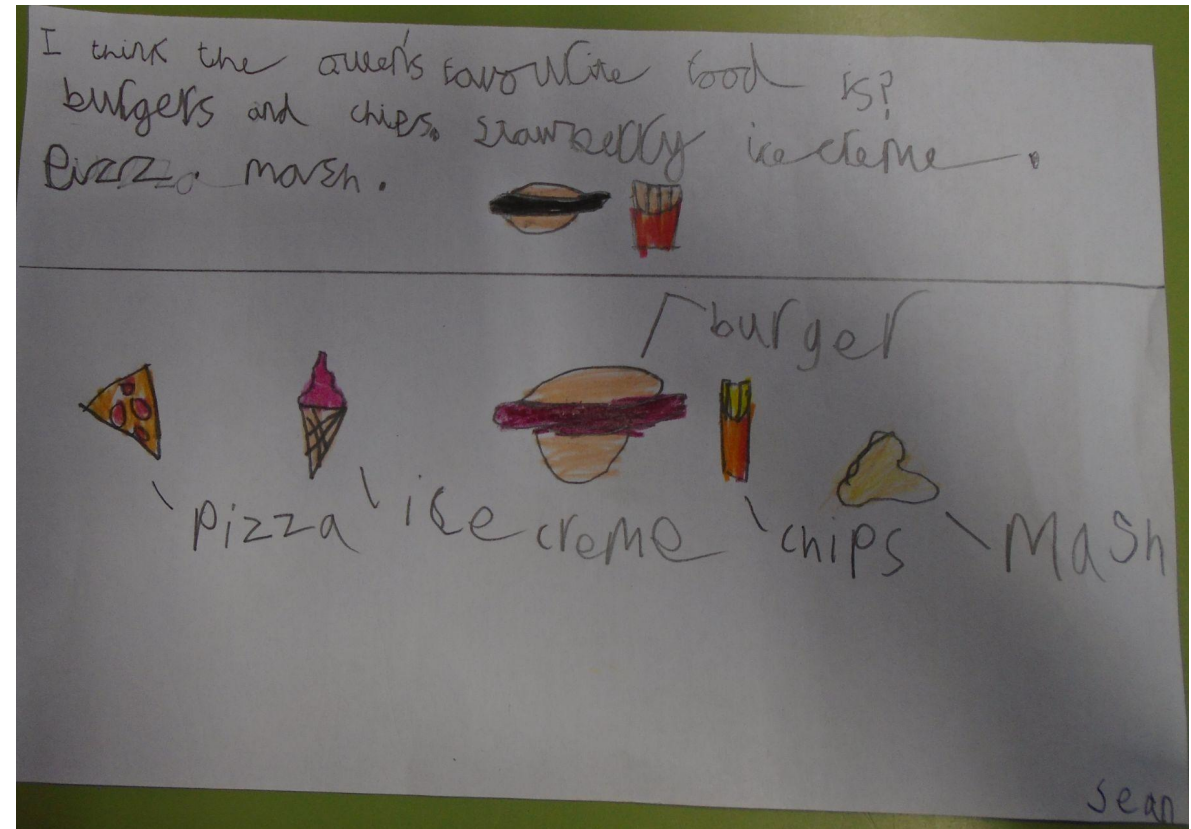 I think the queen's favourite food is?
burgers and chips. strawberry ice creme.
Pizza. mash.
burger
pizza
ice creme
chips
Mash
Sean